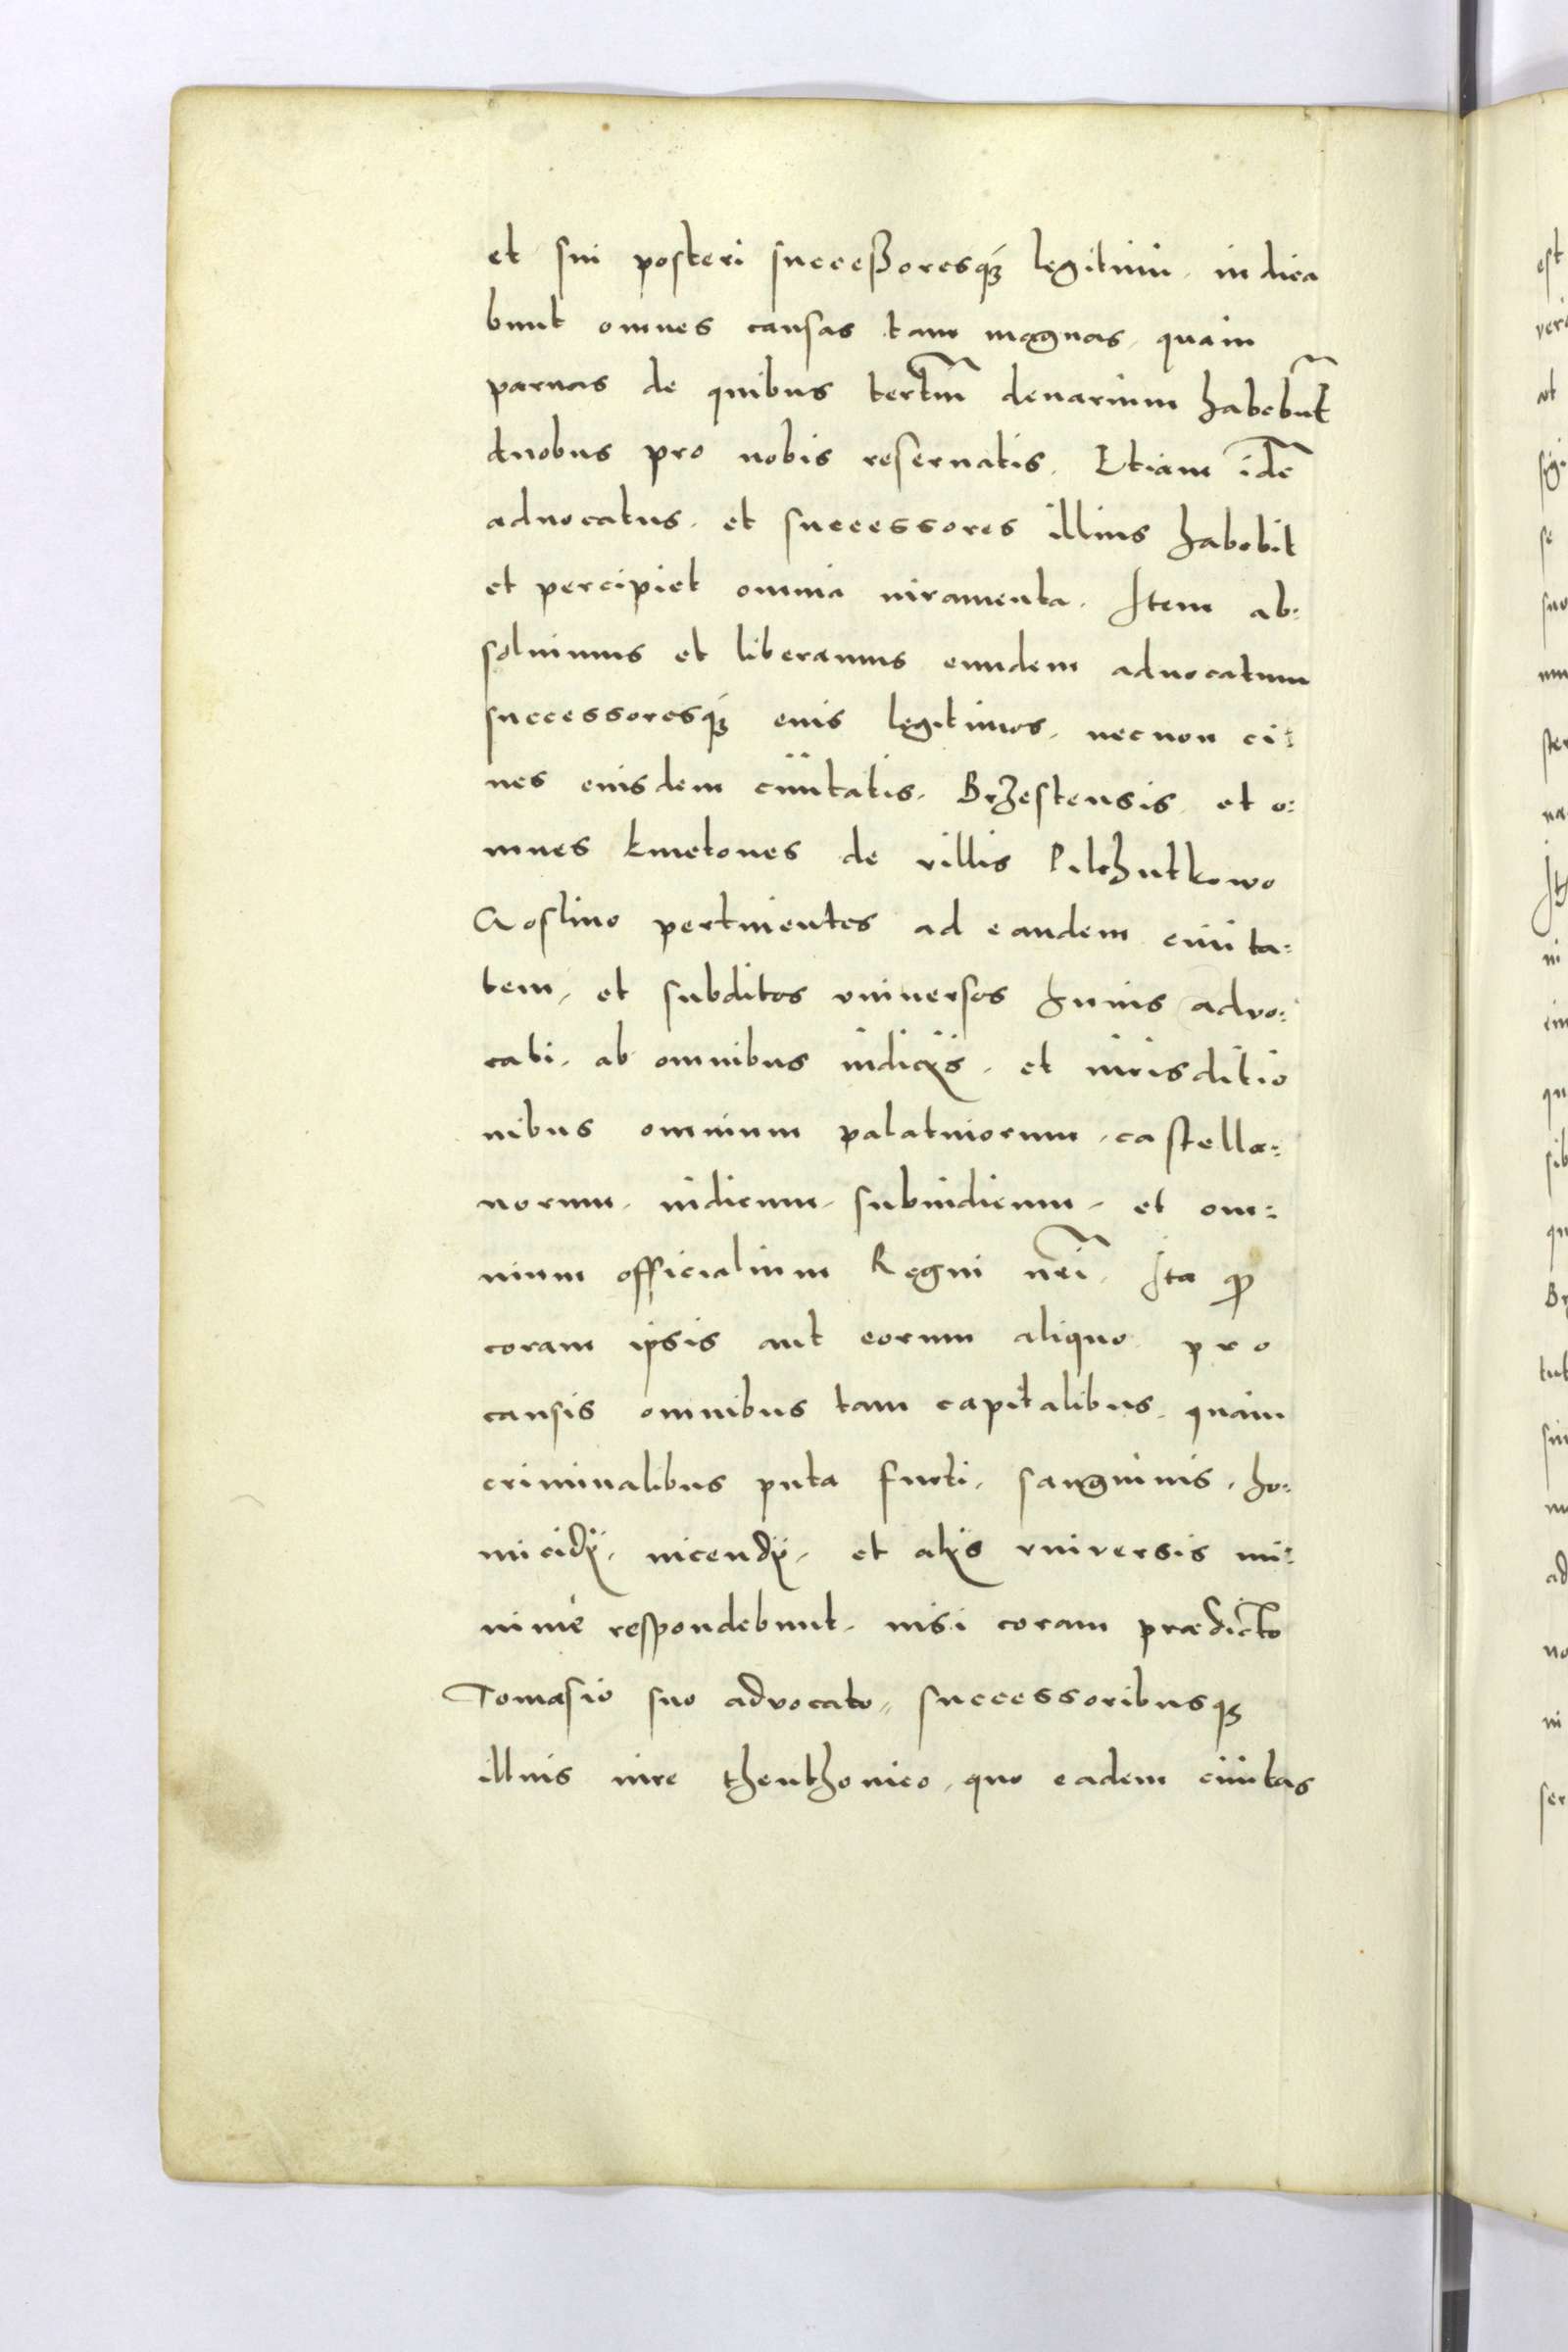 et sui posteri succeßoresq3 legitimi, iudica
bunt omnes causas tam magnas, quàm
paruas de quibus tertiu͂ denarium habebu͂t
duobus pro nobis reseruatis. Etiam ide͂
aduocatus, et successores illius habebit
et percipiet omnia iuramenta. Item ab:
soluimus et liberamus eundem aduocatum
successoresq3 eius legitimos, necnon ci:
ues eiusdem ciuitatis, Brzestensis, et o:
mnes kmetones de villis Pilchutkowo
Goslino pertinentes ad eandem ciuita:
tem, et subditos vniuersos huius advo:
cati, ab omnibus iudicijs, et iurisditio
nibus omnium palatinorum, castella:
norum, iudicum, subiudicum, et om:
nium officialium Regni nr͂i, Ita q̃
coram ipsis aut eorum aliquo pro
causis omnibus tam capitalibus, quàm
criminalibus puta furti, sanguinis, ho:
micidij, incendij, et alijs vniversis mi:
nimè respondebunt, nisi coram prædicto
Tomasio suo advocato, successoribusq3
illius iure theuthonico, quo eadem ciuitas